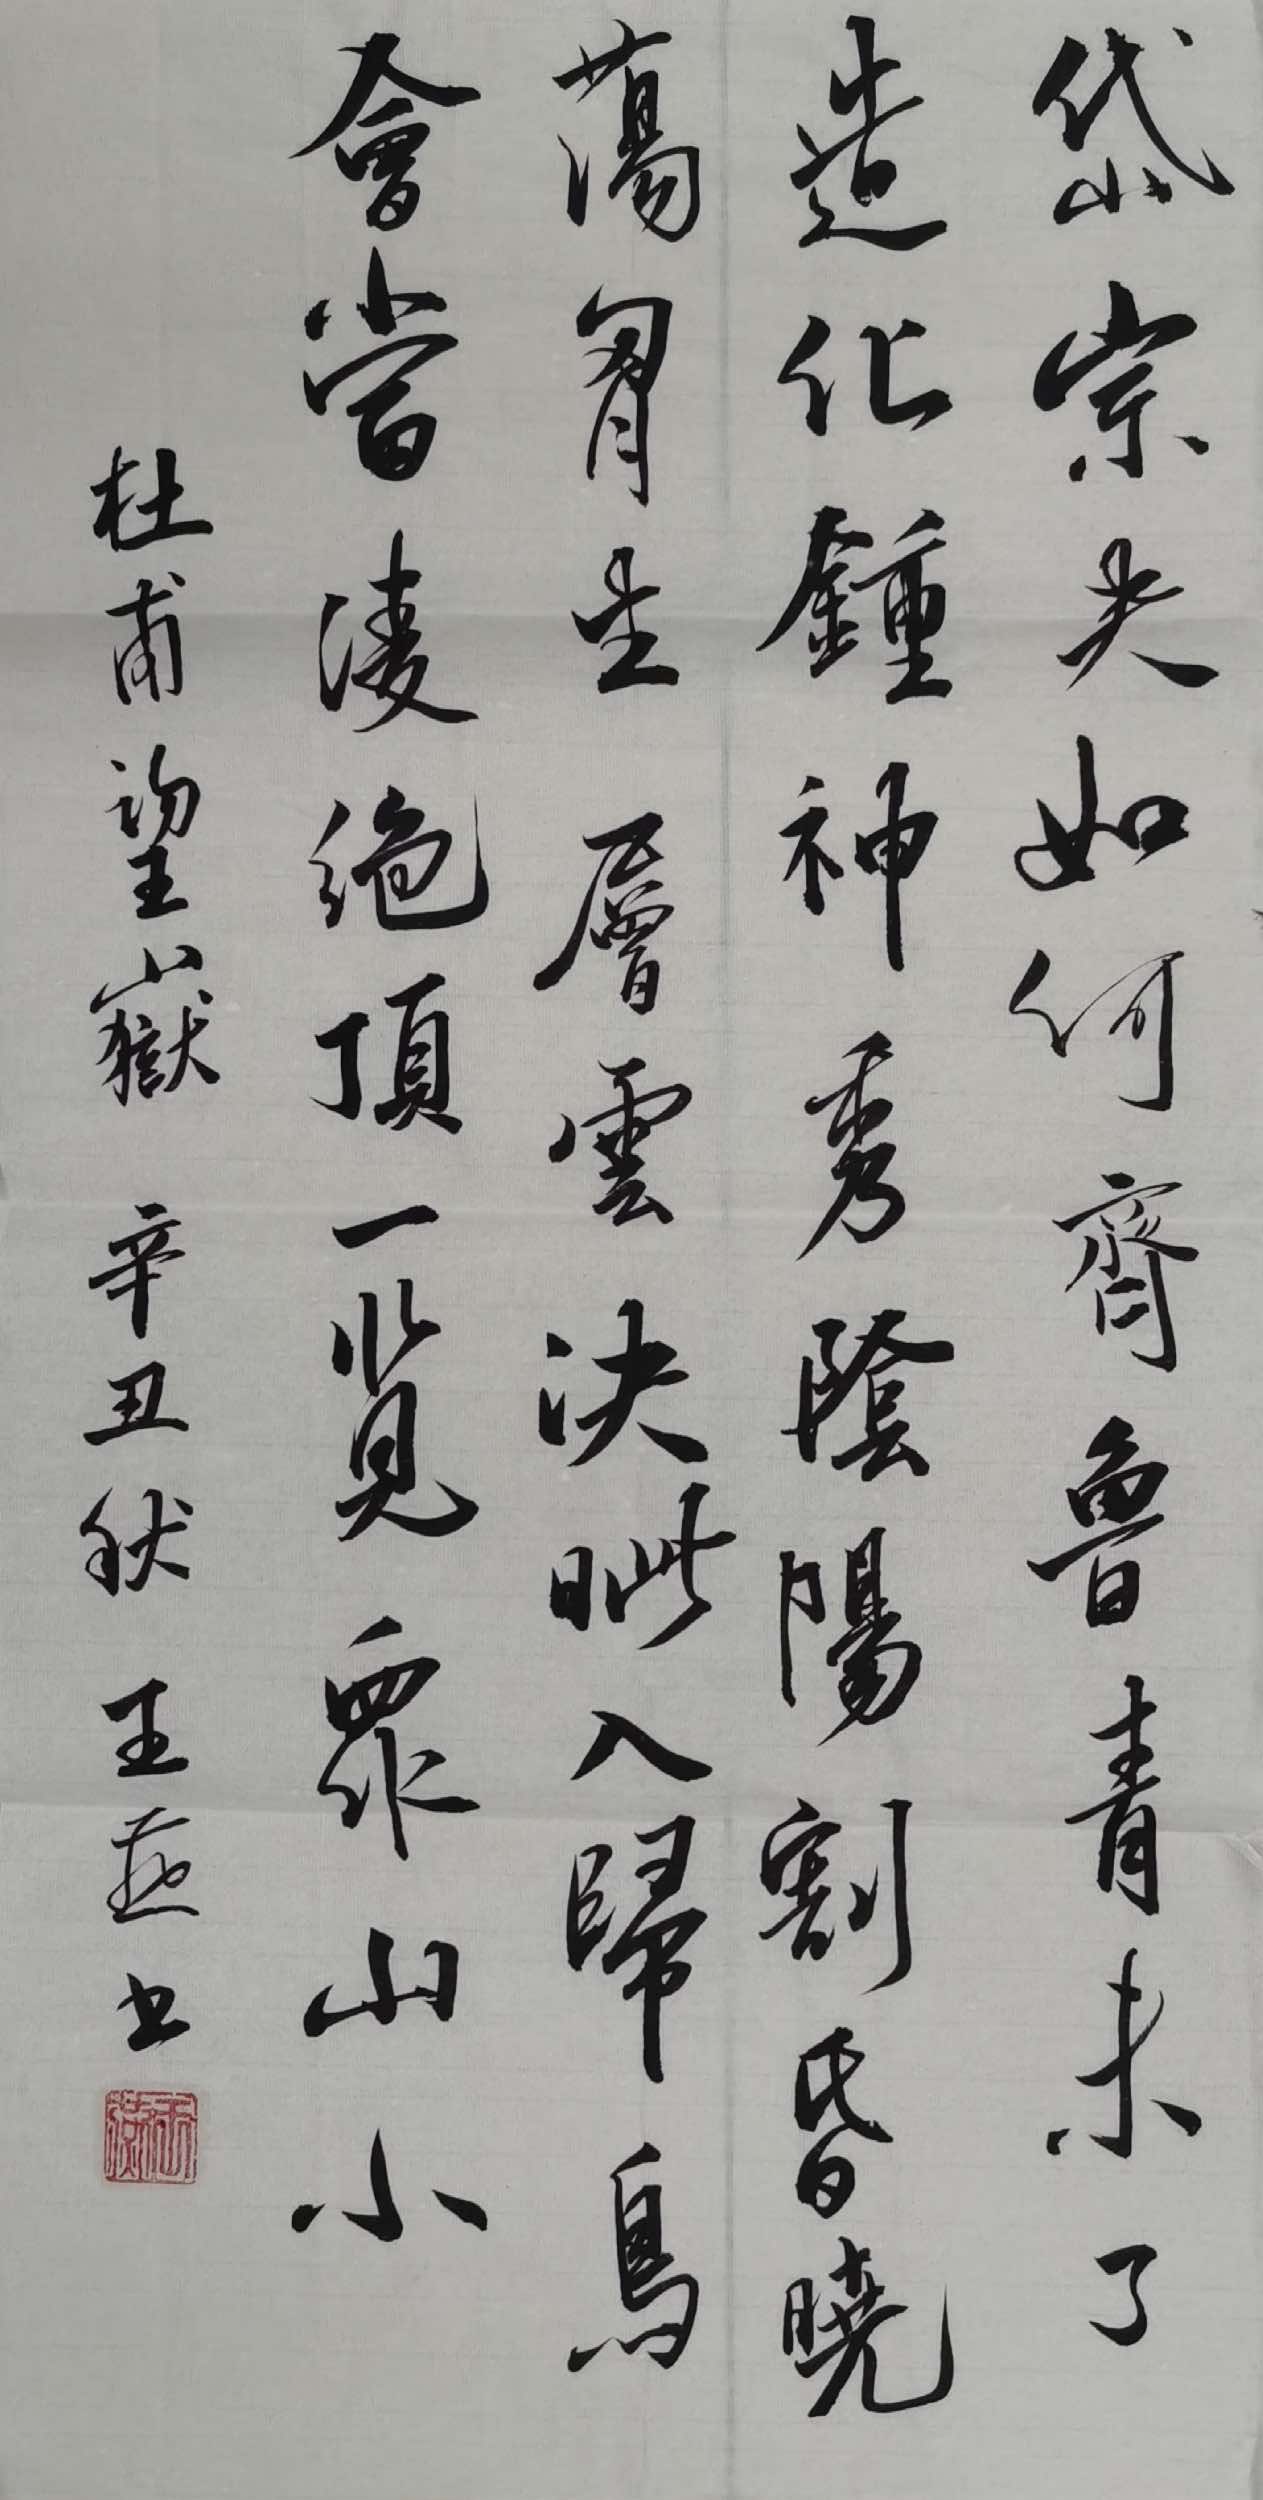 岱宗夫如何齊魯青未了
造化鍾神秀陰陽割昏曉
蕩胷生層雲決眦入歸鳥
會當凌絕頂一覽眾山小
杜甫望嶽 辛丑秋 王燕书